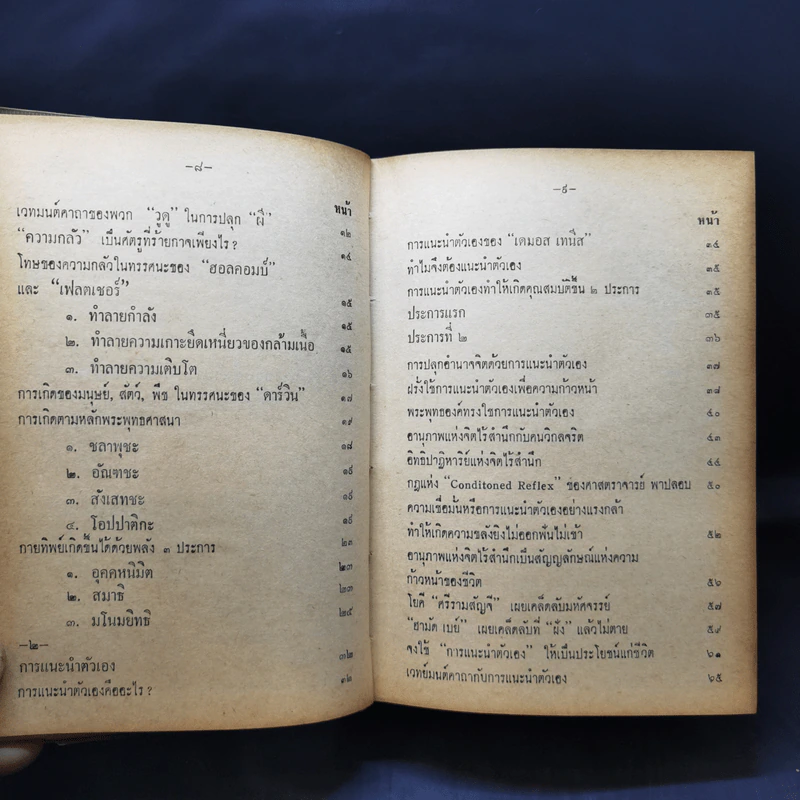 –๘–
หน้า
เวทมนต์คาถาของพวก “วูดู” ในการปลุก “ผี” ๑๒
“ความกลัว” เป็นศัตรูที่ร้ายกาจเพียงไร ? ๑๔
โทษของความกลัวในทรรศนะของ “ฮอลคอมบ์”
และ “เฟลตเชอร์” ๑๕
๑. ทำลายกำลัง ๑๕
๒. ทำลายความเกาะยึดเหนี่ยวของกล้ามเนื้อ ๑๕
๓. ทำลายความเติบโต ๑๖
การเกิดของมนุษย์, สัตว์, พืช ในทรรศนะของ “ดาร์วิน” ๑๗
การเกิดตามหลักพระพุทธศาสนา ๑๙
๑. ชลาพุชะ ๑๘
๒. อัณฑชะ ๑๙
๓. สังเสทชะ ๑๙
๔. โอปปาติกะ ๑๙
กายทิพย์เกิดขึ้นได้ด้วยพลัง ๓ ประการ ๒๓
๑. อุคคหนิมิต ๒๓
๒. สมาธิ ๒๓
๓. มโนมยิทธิ ๒๕
–๒–
การแนะนำตัวเอง ๓๒
การแนะนำตัวเองคืออะไร ? ๓๒
–๙–
หน้า
การแนะนำตัวเองของ “เดมอส เทนีส” ๓๔
ทำไมจึงต้องแนะนำตัวเอง ๓๕
การแนะนำตัวเองทำให้เกิดคุณสมบัติขึ้น ๒ ประการ ๓๕
ประการแรก ๓๕
ประการที่ ๒ ๓๖
การปลุกอำนาจจิตด้วยการแนะนำตัวเอง ๓๗
ฝรั่งใช้การแนะนำตัวเองเพื่อความก้าวหน้า ๓๘
พระพุทธองค์ทรงใช้การแนะนำตัวเอง ๔๐
อานุภาพแห่งจิตไร้สำนึกกับคนวิกลจริต ๔๓
อิทธิปาฏิหาริย์แห่งจิตไร้สำนึก ๔๔
กฎแห่ง “Conditoned Reflex” ของศาสตราจารย์ พาปลอบ ๕๐
ความเชื่อมั่นหรือการแนะนำตัวเองอย่างแรงกล้า
ทำให้เกิดความขลังยิงไม่ออกฟันไม่เข้า ๕๒
อานุภาพแห่งจิตไร้สำนึกเป็นสัญญลักษณ์แห่งความ
ก้าวหน้าของชีวิต ๕๖
โยคี “ศรีรามสัญจี” เผยเคล็ดลับมหัศจรรย์ ๕๗
“ฮามัด เบย์” เผยเคล็ดลับที่ “ฝัง” แล้วไม่ตาย ๕๙
จงใช้ “การแนะนำตัวเอง” ให้เป็นประโยชน์แก่ชีวิต ๖๑
เวทย์มนต์คาถากับการแนะนำตัวเอง ๖๕